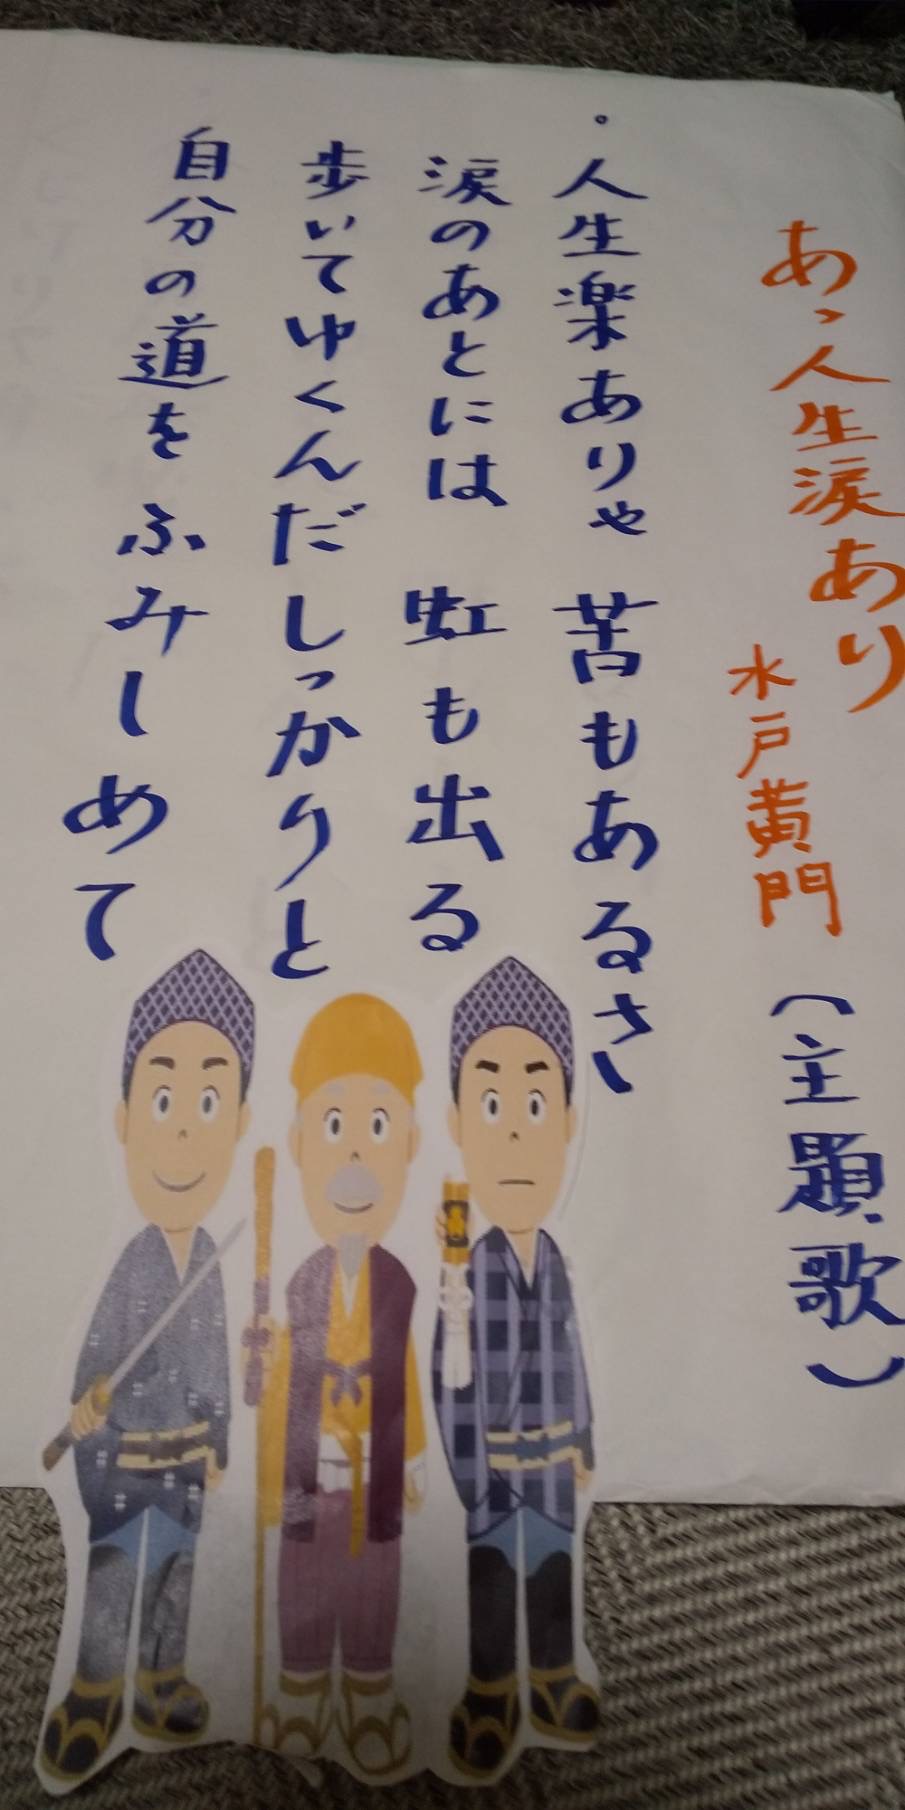 あゝ人生涙あり
水戸黄門(主題歌)
。人生楽ありゃ苦もあるさ
涙のあとには 虹も出る
歩いてゆくんだしっかりと
自分の道をふみしめて